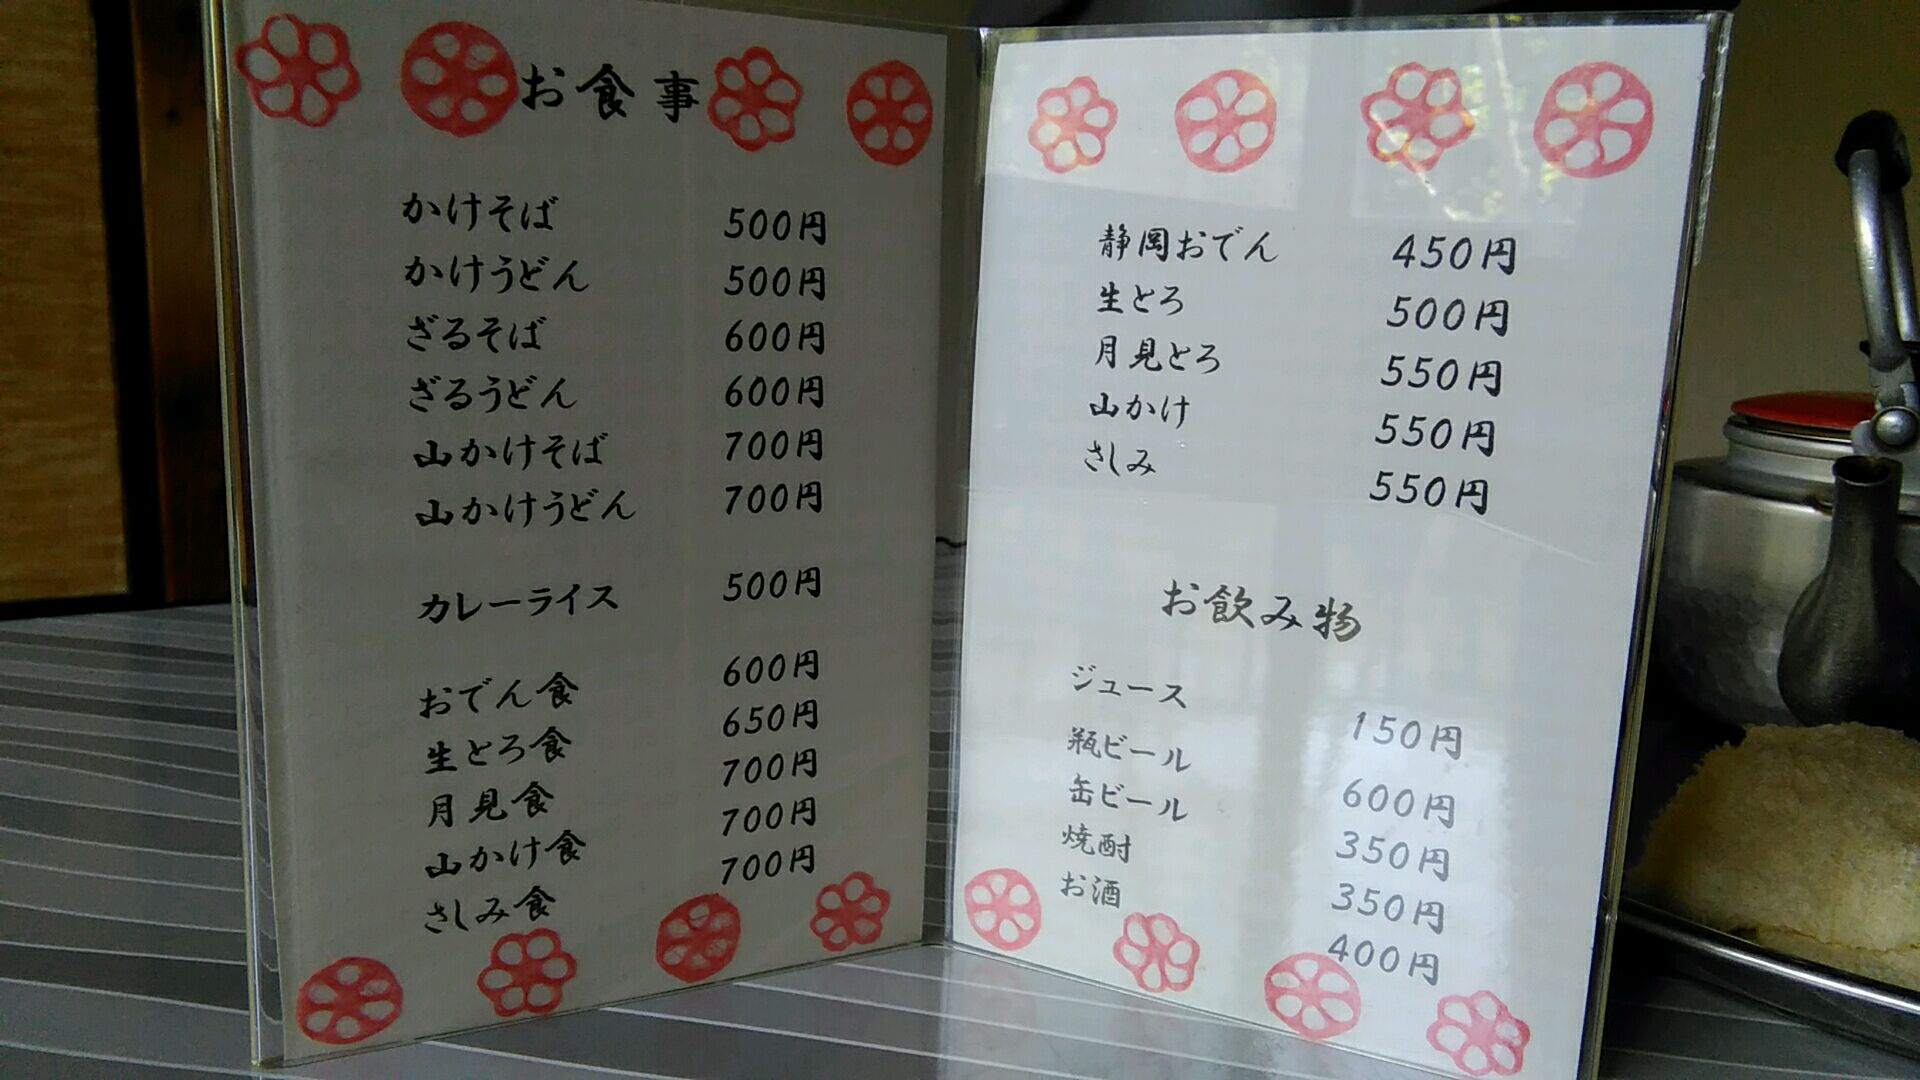 お食事
かけそば 500円
かけうどん 500円
ざるそば 600円
ざるうどん 600円
山かけそば 700円
山かけうどん 700円
カレーライス 500円
おでん食 600円
生とろ食 650円
月見食 700円
山かけ食 700円
さしみ食 700円
静岡おでん 450円
生とろ 500円
月見とろ 550円
山かけ 550円
さしみ 550円
お飲み物
ジュース 150円
瓶ビール 600円
缶ビール 350円
焼酎 350円
お酒 400円